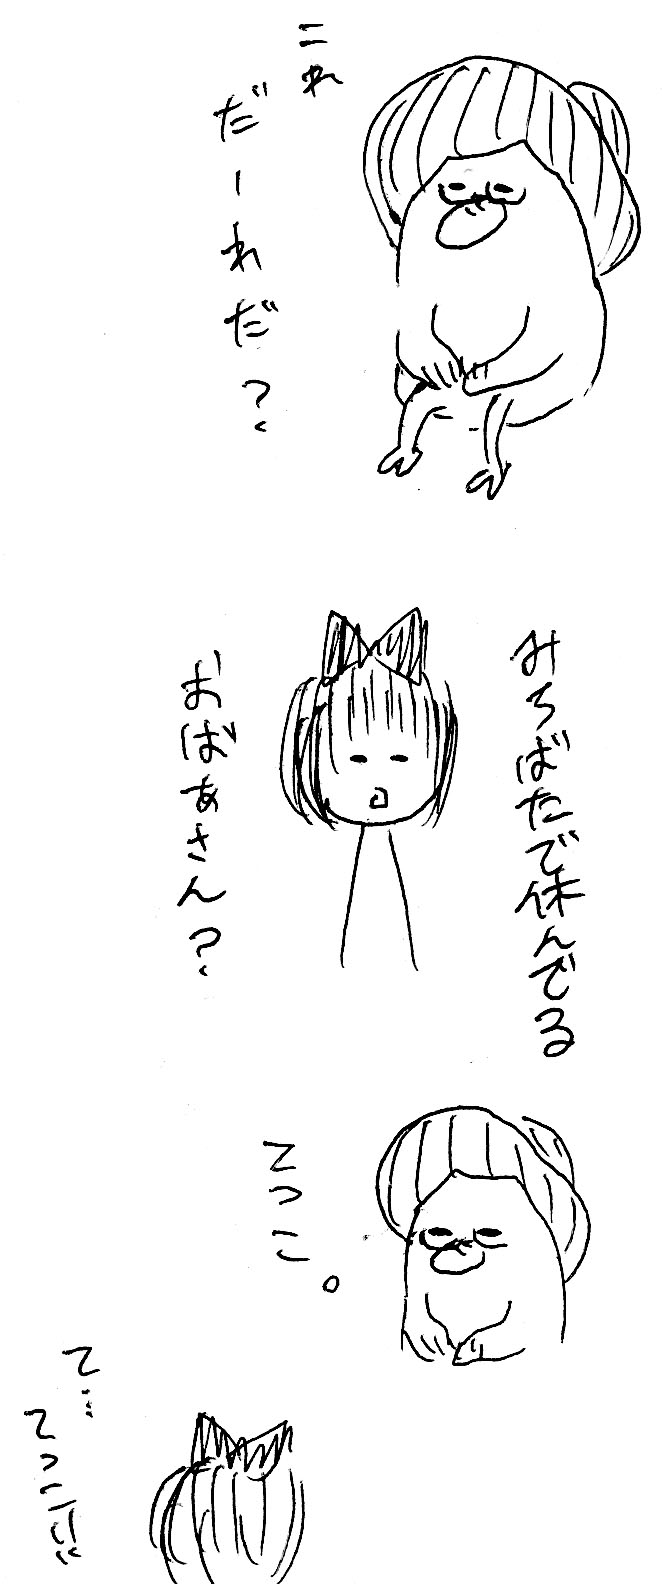 これ
だーれだ?
みちばたで休んでる
おばぁさん?
てつこ。
て…
てつこ!!